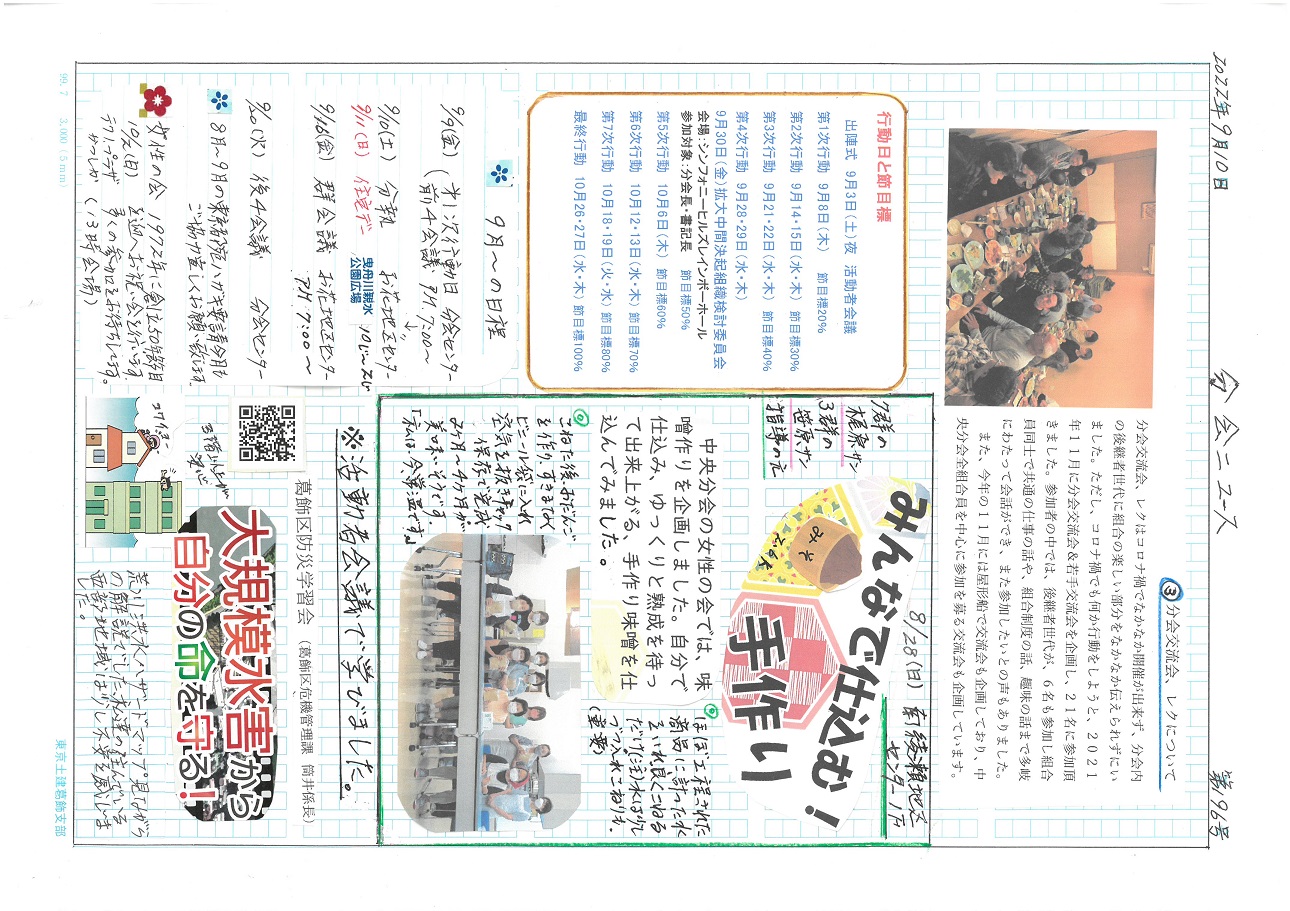 2022年9月10日
分会ニュース
第196号
③分会交流会、レクについて
分会交流会、レクはコロナ禍でなかなか開催が出来ず、分会内
の後継者世代に組合の楽しい部分をなかなか伝えられずにい
ました。ただし、コロナ禍でも何か行動をしようと、2021
年11月に分会交流会&若手交流会を企画し、21名に参加頂
きました。参加者の中では、後継者世代が、6名も参加し組合
員同士で共通の仕事の話や、組合制度の話、趣味の話まで多岐
にわたって会話ができ、また参加したいとの声もありました。
また、今年の11月には屋形船で交流会も企画しており、中
央分会全組合員を中心に参加を募る交流会も企画しています。
行動日と節目標
出陣式 9月3日(土)夜 活動者会議
第1次行動 9月8日(木) 節目標20%
第2次行動 9月14・15日(水・木) 節目標30%
第3次行動 9月21・22日(水・木) 節目標40%
第4次行動 9月28・29日(水・木)
9月30日(金)拡大中間決起組織検討委員会
会場:シンフォニーヒルズレインボーホール
参加対象:分会長・書記長 節目標50%
第5次行動 10月6日(木) 節目標60%
第6次行動 10月12・13日(水・木) 節目標70%
第7次行動 10月18・19日(火・水) 節目標80%
最終行動 10月26・27日(水・木) 節目標100%
8/28(日) 南綾瀬地区
センターに于
みんなで仕込む!
手作り
みそ
7群の
梶原サン
3群の
笹原サン
指導の元
中央分会の女性の会では、味
噌作りを企画しました。自分で
仕込み、ゆっくりと熟成を待っ
て出来上がる、手作り味噌を仕
込んでみました。
ほぼ工程された
薬缶に計った水
だけ注水は少し
づつ入れこねりも
(重要)
こねた後、おだんご
を作り、すきまなく
ビニール袋に入れ
空気を抜きチャック
保存で完成
2ヶ月~4ヶ月が
美味いそうです。
「私は今準温です」
9月~の日程
9/9(金)
9/10(土) 分執 お花地区センター
9/11(日) 住宅デー 曳舟川親水
公園広場 10:00~スタ
9/16(金) 群会議 お花地区センター
PM7:00~
9/20(火) 後4会議 分会センター
8月~9月の
ご協力宜しくお願い致します。
女性の会 1972年に創立50年節目
10/2(日)
テクノプラザ
かつしか
多くの参加をお待ちしてます。
(13時会場)
※活動者会議で学びました。
葛飾区防災学習会 (葛飾区危機管理課 筒井係長)
大規模水害から
自分の命を守る!
3階以上が
安心
荒川洪水ハザードマップ見ながら
の解説でした。私達の住んでいる
西部地域は少し不安を感じま
した。
99.7 3,000 (5mm)
東京土建葛飾支部